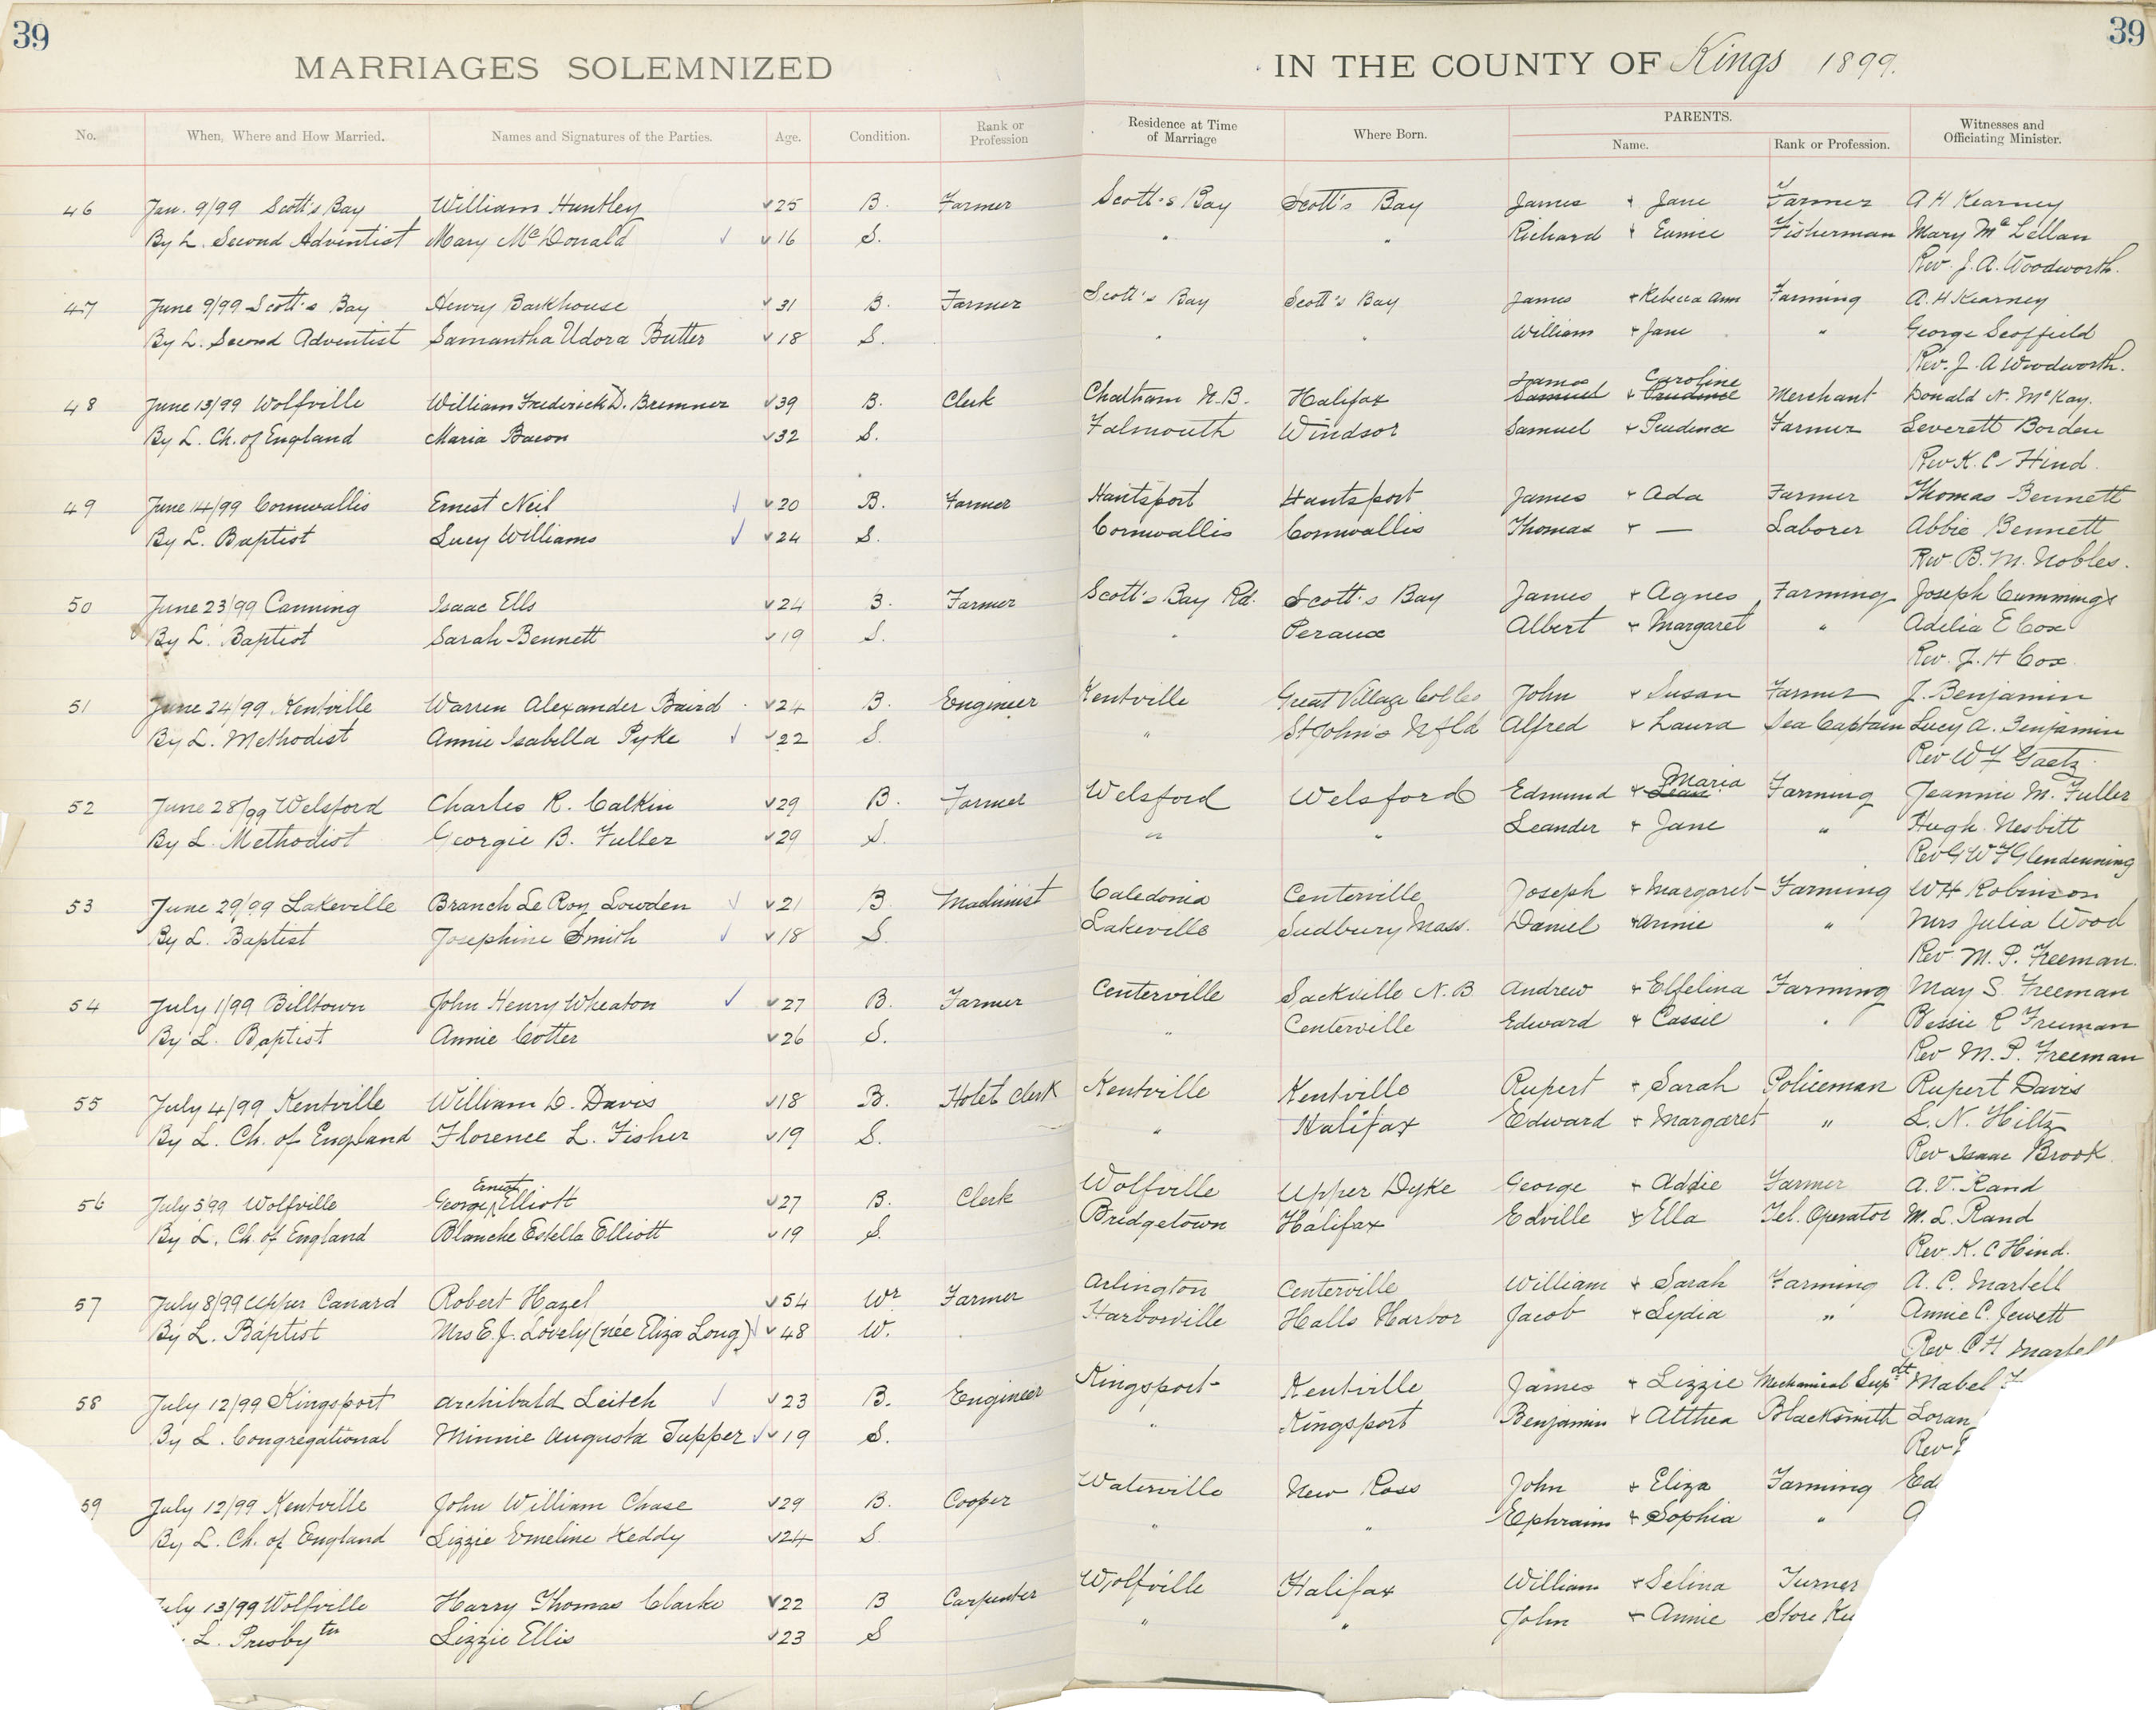 39
39
MARRIAGES SOLEMNIZED IN THE COUNTY OF Kings 1899.
No. When, Where and How Married. Names and Signatures of the Parties. Age. Condition. Rank or Profession Residence at Time of Marriage Where Born. PARENTS. Name. Rank or Profession. Witnesses and Officiating Minister.
46 Jan. 9/99 Scott's Bay William Huntley 25 B. Farmer Scott's Bay Scott's Bay James + Jane Farmer A H Kearney
By L. Second Adventist Mary McDonald 16 S. " " Richard + Eunice Fisherman Mary McLellan
Rev. J. A. Woodworth.
47 June 9/99 Scott's Bay Henry Barkhouse 31 B. Farmer Scott's Bay Scott's Bay James + Rebecca Ann Farming A. H Kearney
By L. Second Adventist Samantha Udora Butter 18 S. " " William + Jane " George Scoffield
Rev. J. A Woodworth.
James Caroline
48 June 13/99 Wolfville William Frederick D. Bremner 39 B. Clerk Chatham N.B. Halifax Samuel + Prudence Merchant Donald N. McKay.
By L. Ch. of England Maria Bacon 32 S. Falmouth Windsor Samuel + Prudence Farmer Leverett Borden
Rev K. C. Hind.
49 June 14/99 Cornwallis Ernest Neil 20 B. Farmer Hantsport Hantsport James + Ada Farmer Thomas Bennett
By L. Baptist Lucy Williams 24 S. Cornwallis Cornwallis Thomas + — Laborer Abbie Bennett
Rev B. M. Nobles.
50 June 23/99 Canning Isaac Ells 24 B. Farmer Scott's Bay Rd. Scott's Bay James + Agnes Farming Joseph Cummings
By L. Baptist Sarah Bennett 19 S. " Peraux Albert + Margaret " Adelia E Cox
Rev. J. H Cox.
51 June 24/99 Kentville Warren Alexander Baird 24 B. Engineer Kentville Great Village Colles John + Susan Farmer J. Benjamin
By L. Methodist Annie Isabella Pyke 22 S. " St John's Nfld Alfred + Laura Sea Captain Lucy A. Benjamin
Rev W F Gaetz.
Maria
52 June 28/99 Welsford Charles R. Calkin 29 B. Farmer Welsford Welsford Edmund + Farming Jeannie M. Fuller
By L. Methodist Georgie B. Fuller 29 S. " " Leander + Jane " Hugh Nesbitt
Rev G W F Glendenning
53 June 29/99 Lakeville Branch Le Roy Lowden 21 B. Machinist Caledonia Centerville Joseph + Margaret Farming W H Robinson
By L. Baptist Josephine Smith 18 S. Lakeville Sudbury Mass. Daniel + Annie " Mrs Julia Wood
Rev. M. P. Freeman.
54 July 1/99 Billtown John Henry Wheaton 27 B. Farmer Centerville Sackville N. B Andrew + Elfelina Farming May S. Freeman
By L. Baptist Annie Cotter 26 S. " Centerville Edward + Cassie " Bessie R Freeman
Rev M. P. Freeman
55 July 4/99 Kentville William D. Davis 18 B. Hotel Clerk Kentville Kentville Rupert + Sarah Policeman Rupert Davis
By L. Ch. of England Florence L. Fisher 19 S. " Halifax Edward + Margaret " L. N. Hiltz
Rev Isaac Brock.
Ernest
56 July 5/99 Wolfville George Elliott 27 B. Clerk Wolfville Upper Dyke George + Addie Farmer A. V. Rand
By L. Ch. of England Blanche Estella Elliott 19 S. Bridgetown Halifax Edville + Ella Tel. Operator M. L. Rand
Rev. K. C Hind.
57 July 8/99 Upper Canard Robert Hazel 54 Wr. Farmer Arlington Centerville William + Sarah Farming A. C. Martell
By L. Baptist Mrs E. J. Lovely (née Eliza Long) 48 W. Harborville Halls Harbor Jacob + Lydia " Annie C. Jewett
Rev. C H Martell
58 July 12/99 Kingsport Archibald Leitch 23 B. Engineer Kingsport Kentville James + Lizzie Mechanical Supdt. Mabel
By L. Congregational Minnie Augusta Tupper 19 S. " Kingsport Benjamin + Althea Blacksmith Loran
Rev
59 July 12/99 Kentville John William Chase 29 B. Cooper Waterville New Ross John + Eliza Farming Ed
By L. Ch. of England Lizzie Emeline Keddy 24 S. " " Ephraim + Sophia "
July 13/99 Wolfville Harry Thomas Clarke 22 B Carpenter Wolfville Halifax William + Selina Turner
L. Presbytn Lizzie Ellis 23 S " " John + Annie Store Ke